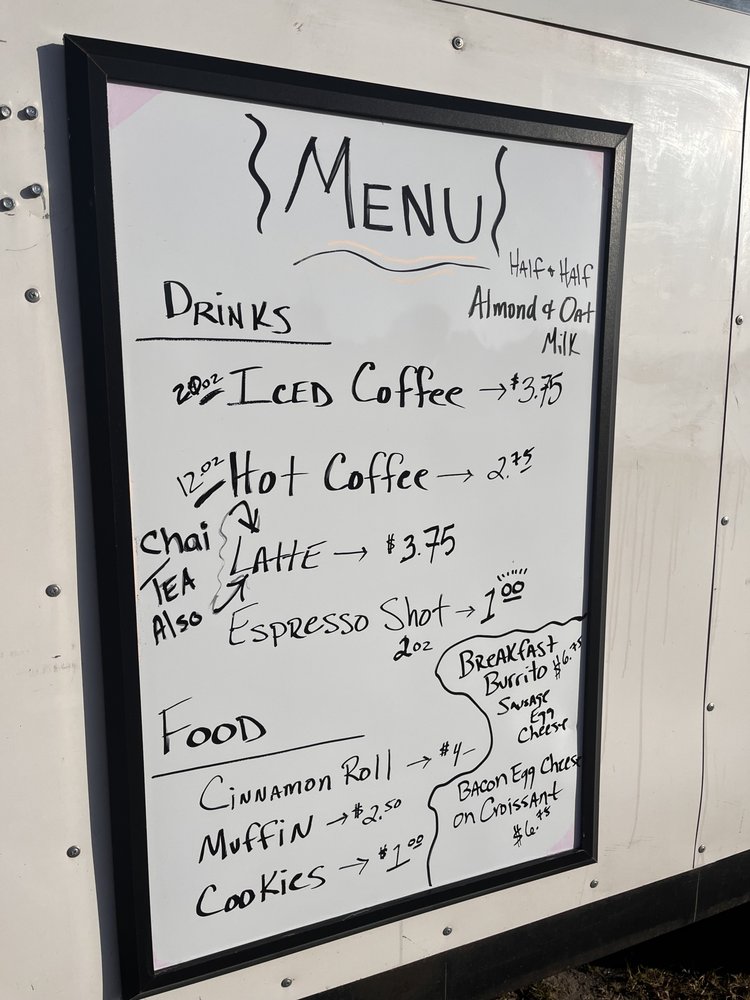 MENU
Half & Half
Almond & Oat
Milk
DRINKS
20oz ICED Coffee → $3.75
12oz Hot Coffee → 2.75
Chai
TEA
Also
LAttE → $3.75
Espresso Shot → 1.00
2oz
FOOD
Cinnamon Roll → $4-
Muffin → $2.50
Cookies → $1.00
Breakfast
Burrito $6.75
Sausage
Egg
Cheese
Bacon Egg Cheese
on Croissant
$6.75